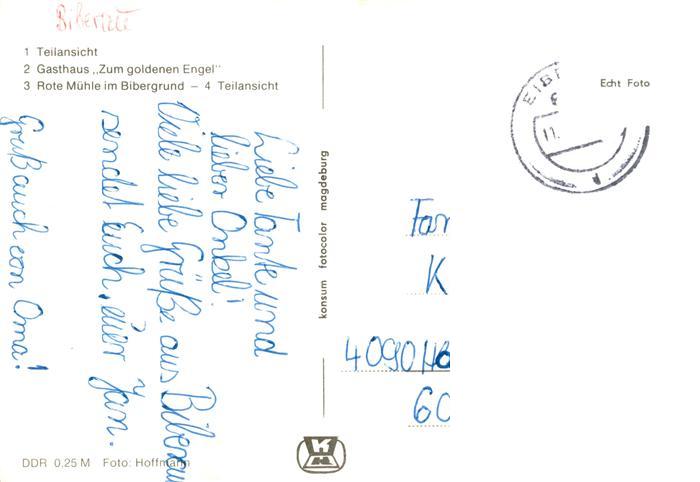 Biberau
1 Teilansicht
2 Gasthaus „Zum goldenen Engel"
3 Rote Mühle im Bibergrund – 4 Teilansicht
Echt Foto
Liebe Tante und
lieber Onkel!
Viele liebe Grüße aus Biberau
sendet Euch, euer Jan.
Gruß auch von Oma!
konsum fotocolor magdeburg
Fam
K
4090 Ha
60
DDR 0,25 M Foto: Hoffmann